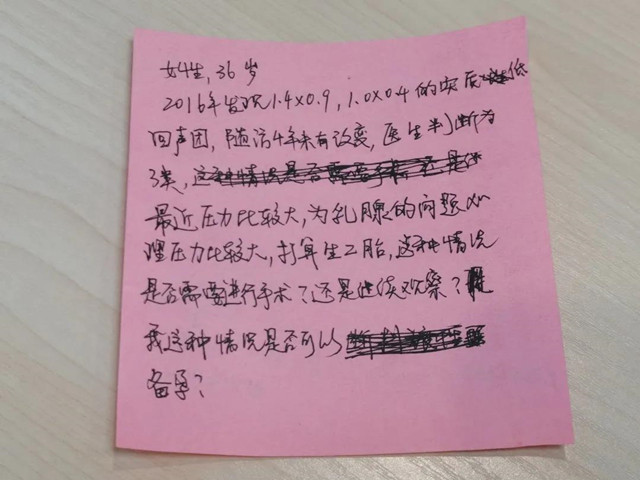 女生,36岁
2016年发现1.4×0.9,1.0×0.4的实质低
回声团,随访4年未有改变,医生判断为
3类,这种情况是否需要手术还是
最近压力比较大,为乳腺的问题心
理压力比较大,打算生二胎,这种情况
是否需要进行手术?还是继续观察?
我这种情况是否可以
备孕?